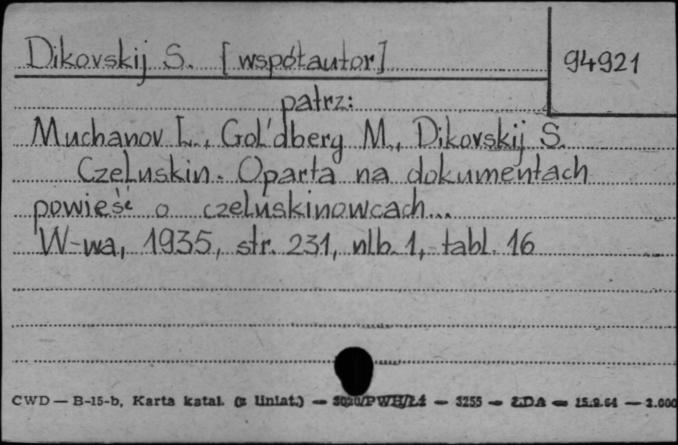 Dikovskij S. [współautor]
94921
patrz:
Muchanov L., Gol'dberg M., Dikovskij S.
Czeluskin. Oparta na dokumentach
powieść o czeluskinowcach...
W-wa, 1935, str. 231, nlb. 1, tabl. 16
CWD — B-15-b, Karta katal. (z liniat.) — 3020/PWH/Łź — 3255 — ŁDA — 15.9.64 — 2.000